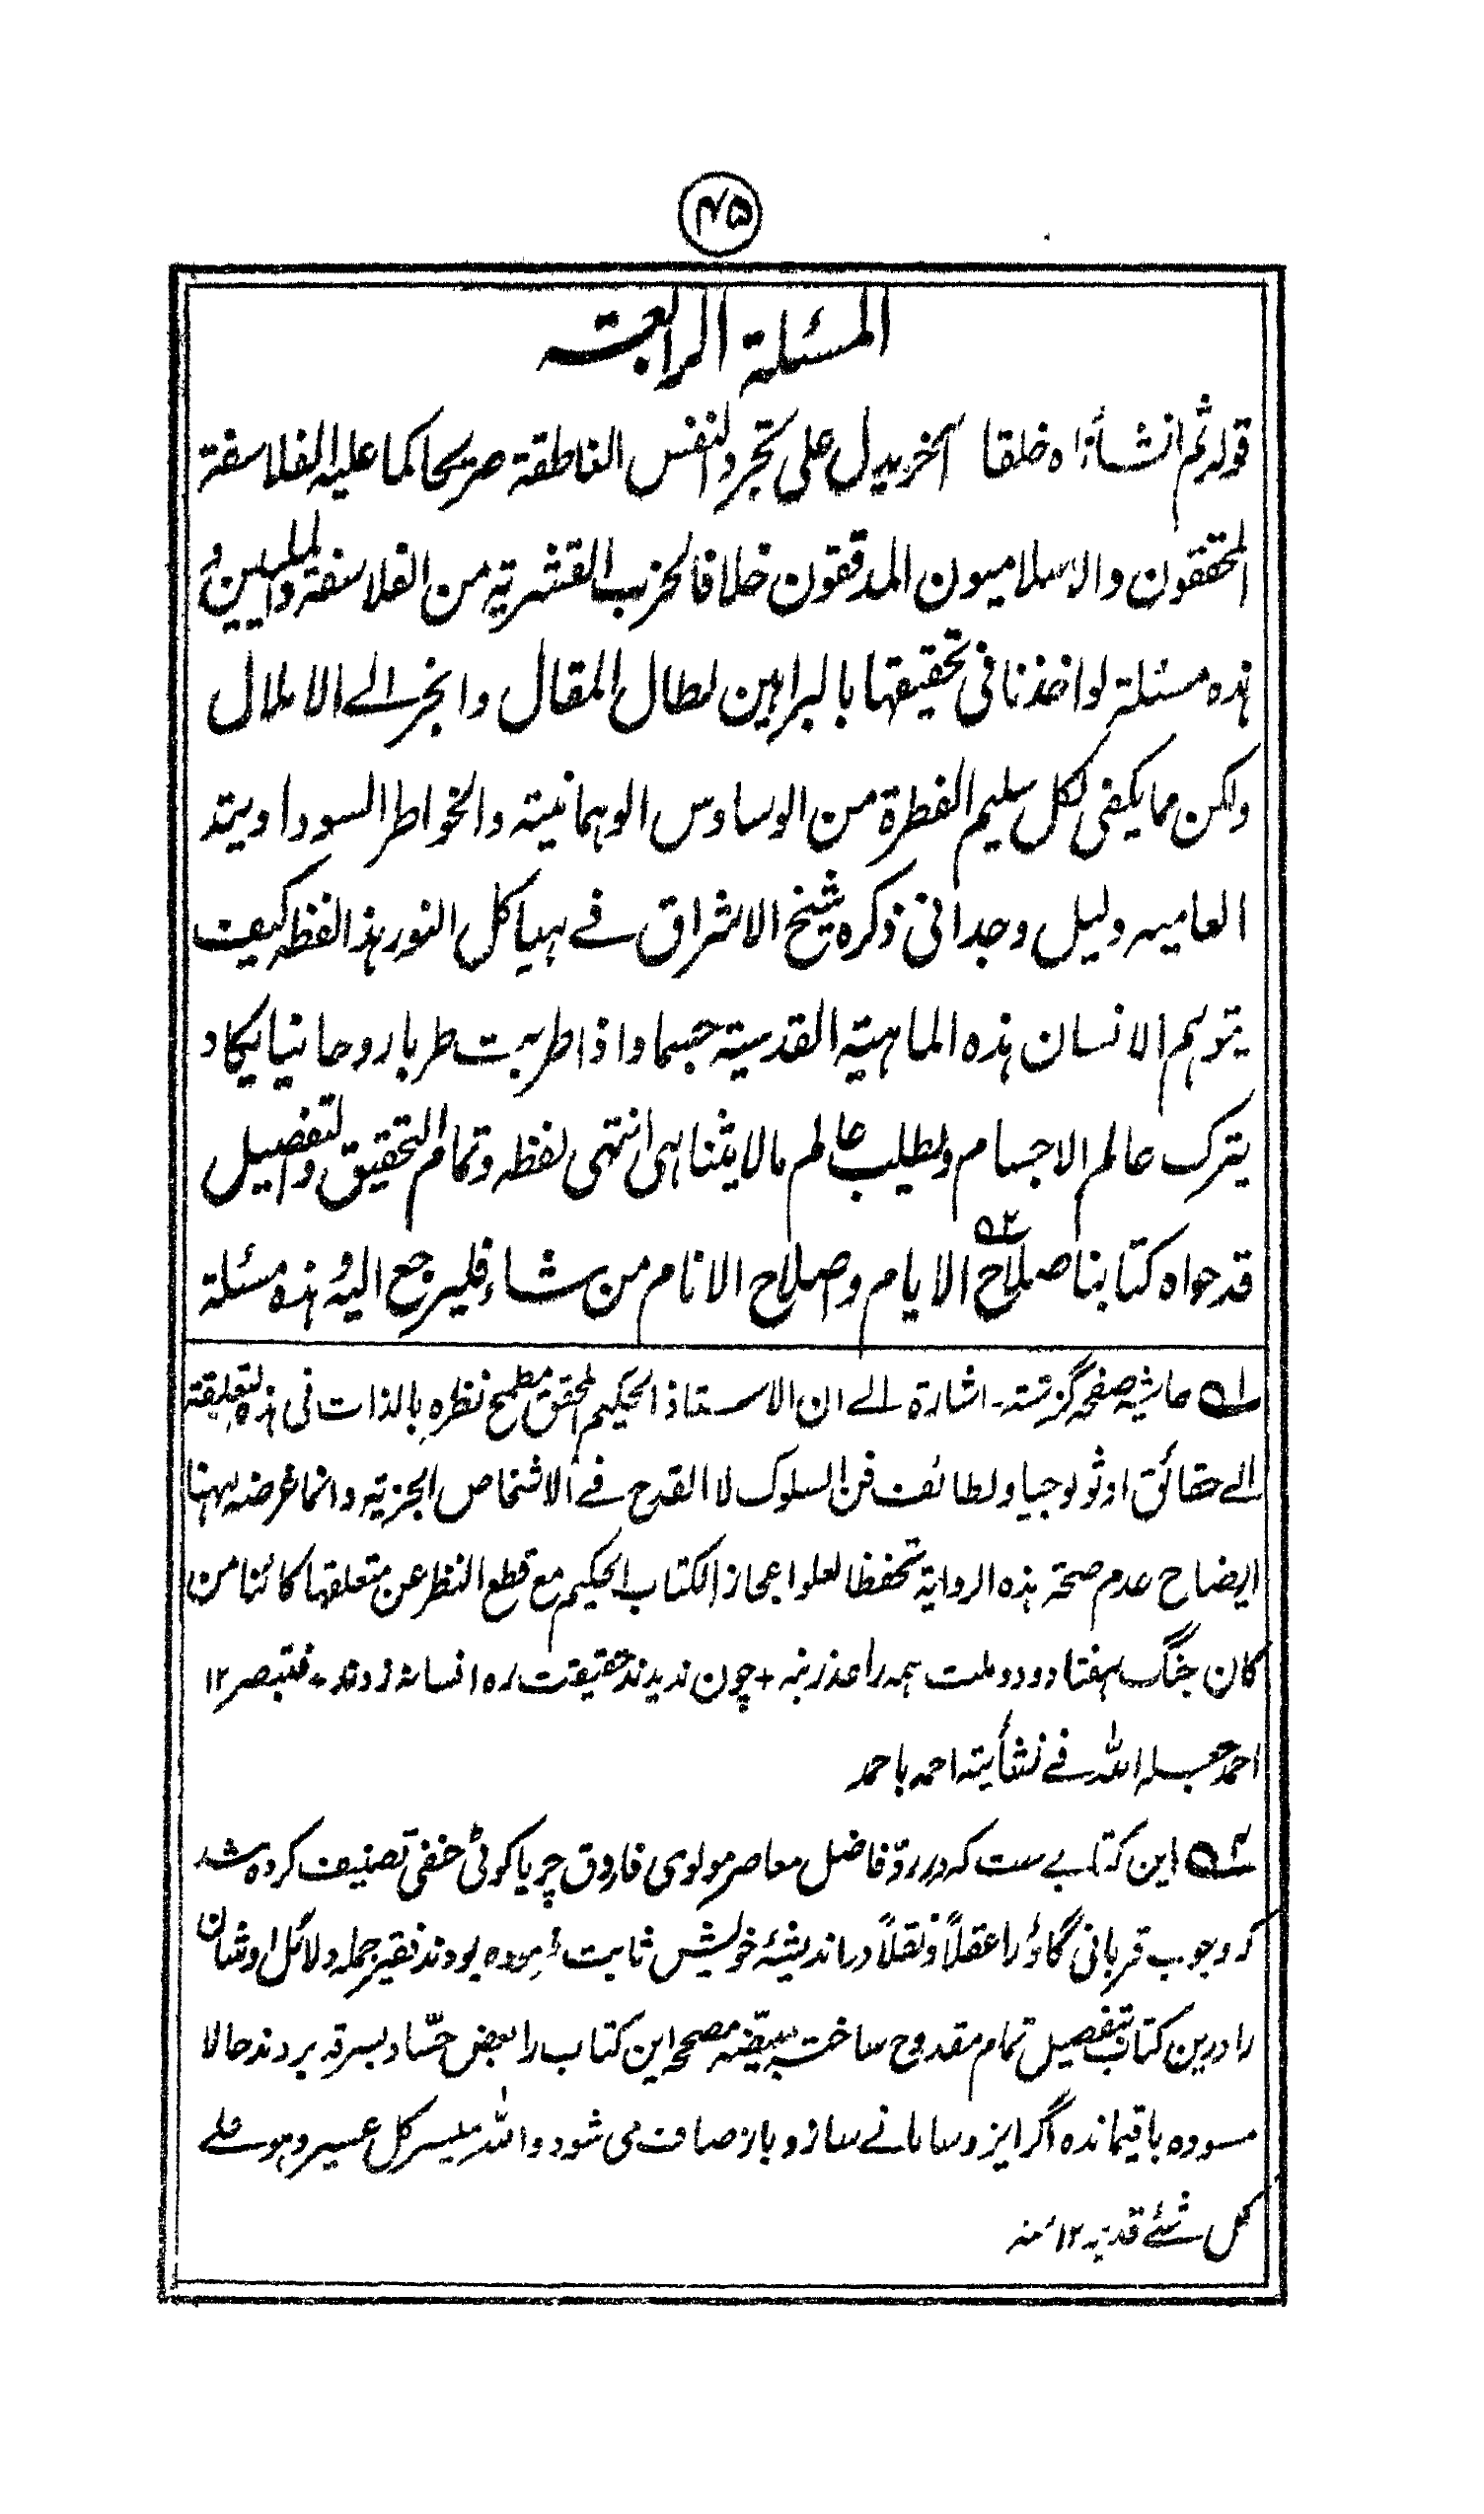 ۴۵
المسئلة الرابعة
قوله ثم انشأناه خلقا آخر يدل على تجرد النفس الناطقة صريحا كما عليه الفلاسفة
المحققون والاسلاميون المدققون خلافا لحزب القشرية من الفلاسفة والمليين و
هذه مسئلة لو اخذنا فى تحقيقها بالبراهين لطال المقال وانجر الى الاملال
ولكن مما يكفى لكل سليم الفطرة من الوساوس الوهمانية والخواطر السوداويتة
العاميه دليل وجدانى ذكره شيخ الاشراق فے هياكل النور هذا لفظه كيف
يتوهم الانسان هذه الماهية القدسية جسما واذا طربت طربا روحانيا يكاد
يترك عالم الاجسام ويطلب عالم مالا يتناهى انتهى لفظه وتمام التحقيق والتفصيل
قد حواه كتابنا صلاح الايام وصلاح الانام من شاء فليرجع اليه و هذه مسئلة
۱ حاشيه صفحه گزشته۔ اشارة الے ان الاستاذ الحكيم المحقق مطمح نظره بالذات فى هذه التعليقة
الے حقائق اوثولوجيا ولطائف فن السلوك لا القدح فے الاشخاص الجزية وانما غرضه ههنا
ايضاح عدم صحة هذه الرواية تحفظا لعلو اعجاز الكتاب الحكيم مع قطع النظر عن متعلقها كائنا من
كان جنگ هفتاد و دو ملت همه را عذر بنه + چون نديدند حقيقت ره افسانه زدند۔ فتبصر ۱۲
احمد جعله الله فے نشأيته احمد باحمد
۲ اين كتابے ست كه در ردّ فاضل معاصر مولوى فاروق چرياكوٹى حنفى تصنيف كرده شد
كه وجوب قربانى گاؤ را عقلاً و نقلاً در انديشۀ خويش ثابت نموده بودند فقير جمله دلائل اوشان
را درين كتاب بتفصيل تمام مقدوح ساخت مبيّضه مصححه اين كتاب را بعض حسّاد بسرقه بردند حالا
مسوده باقيمانده اگر ايزد سامانے سازد باز صاف مى شود والله ميسر كل عسير وهو علے
كل شئے قدير ۱۲ منه